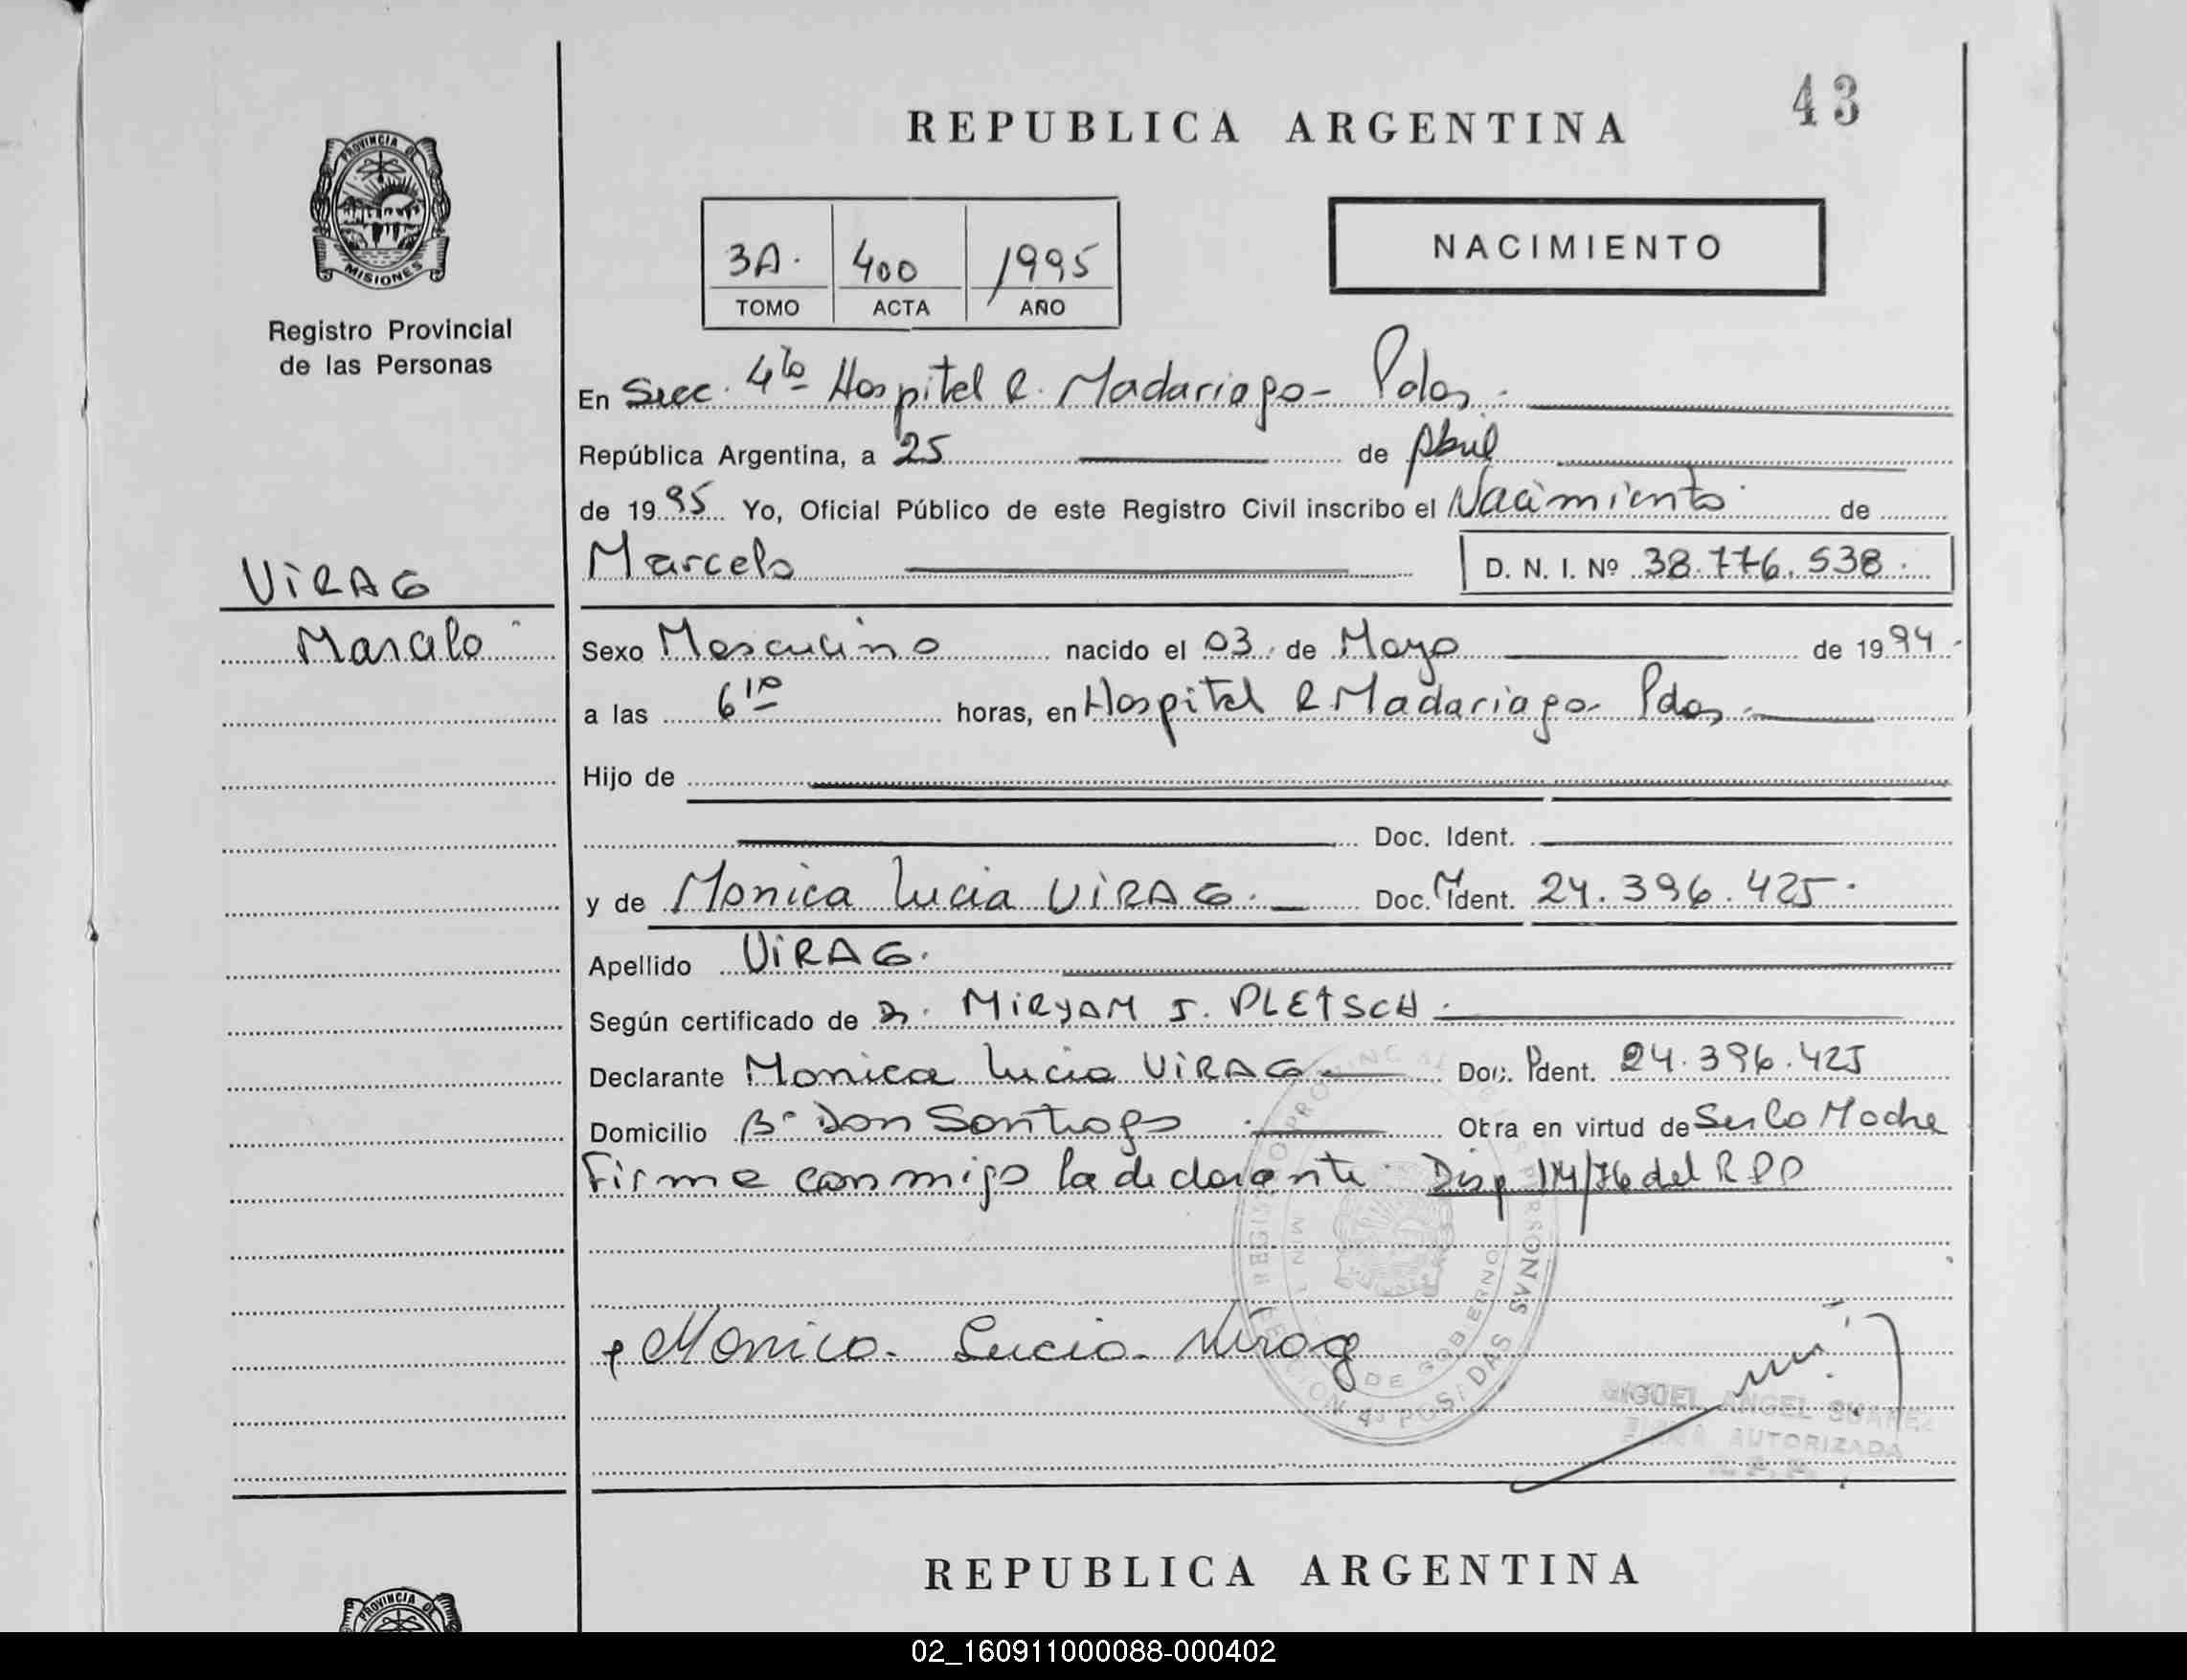 43
REPUBLICA ARGENTINA
PROVINCIA DE
MISIONES
Registro Provincial
de las Personas
3A. 400 1995
TOMO ACTA AÑO
NACIMIENTO
En Secc. 4ta Hospital R. Madariaga - Pdas.
República Argentina, a 25 de Abril
de 1995 Yo, Oficial Público de este Registro Civil inscribo el Nacimiento de
Marcelo D. N. I. Nº 38.776.538.
VIRAG
Marcelo
Sexo Masculino nacido el 03 de Mayo de 1994.
a las 6 10 horas, en Hospital R Madariaga - Pdas.
Hijo de
Doc. Ident.
y de Monica Lucia VIRAG. Doc. Ident. 24.396.425.
Apellido VIRAG.
Según certificado de Dr. MIRYAM J. PLETSCH.
Declarante Monica Lucia VIRAG Doc. Ident. 24.396.425
Domicilio Bº Don Santiago Obra en virtud de Ser la Madre
Firma conmigo la declarante. Disp 114/76 del RPP
Monica Lucia Virag
DE GOBIERNO
POSADAS
MIGUEL ANGEL SUAREZ
FIRMA AUTORIZADA
REPUBLICA ARGENTINA
PROVINCIA DE
02_160911000088-000402